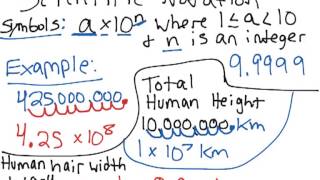 Scientific Notation
Symbols: a × 10ⁿ where 1 ≤ a < 10
& n is an integer
Example:
9.9999
425,000,000.
4.25 × 10⁸
Total
Human Height
10,000,000. km
1 × 10⁷ km
Human hair width